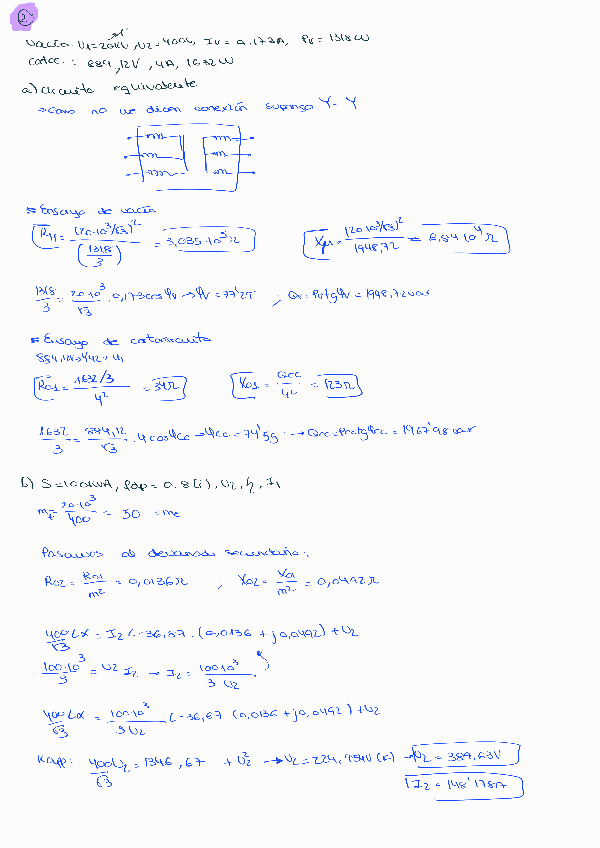 2
Vacío: U1=20kV, U2=400V, Iv=0.173A, Pv=1318W
Cotoc.: 884,12V, 4A, 1632W
a) Circuito equivalente
Como no me dicen conexión supongo Y-Y
* Ensayo de vacío
R_Fe = (20·10³/√3)² / (1318/3) = 3,035·10⁵Ω
Xμ = (20·10³/√3)² / 1948,72 = 6,84·10⁴Ω
1318/3 = 20·10³/√3 · 0,173 cosφv → φv = 77'27 ; Qv = Pv tgφv = 1948,72 var
* Ensayo de cortocircuito
R01 = (1632/3) / 4² = 34Ω
X01 = Qcc / 4² = 123Ω
1632/3 = 884,12/√3 · 4 cosφcc → φcc = 74'59 → Qcc = Pcc tgφcc = 1967'98 var
b) S=100kVA, fdp=0.8(i), U2, η, I1
m_t = 20·10³/400 = 50 = mc
Pasamos al devanado secundario:
R02 = R01/m² = 0,0136Ω , X02 = X01/m² = 0,0492Ω
400/√3 ∠α = I2 ∠-36,87 · (0,0136 + j0,0492) + U2
100·10³/3 = U2 I2 → I2 = 100·10³/(3 U2)
400/√3 ∠α = 100·10³/(3U2) ∠-36,87 (0,0136 + j0,0492) + U2
Kapp: 400U2/√3 = 1346,67 + U2² → U2 = 224,954V (F) → U2 = 389,63V
I2 = 148'178A